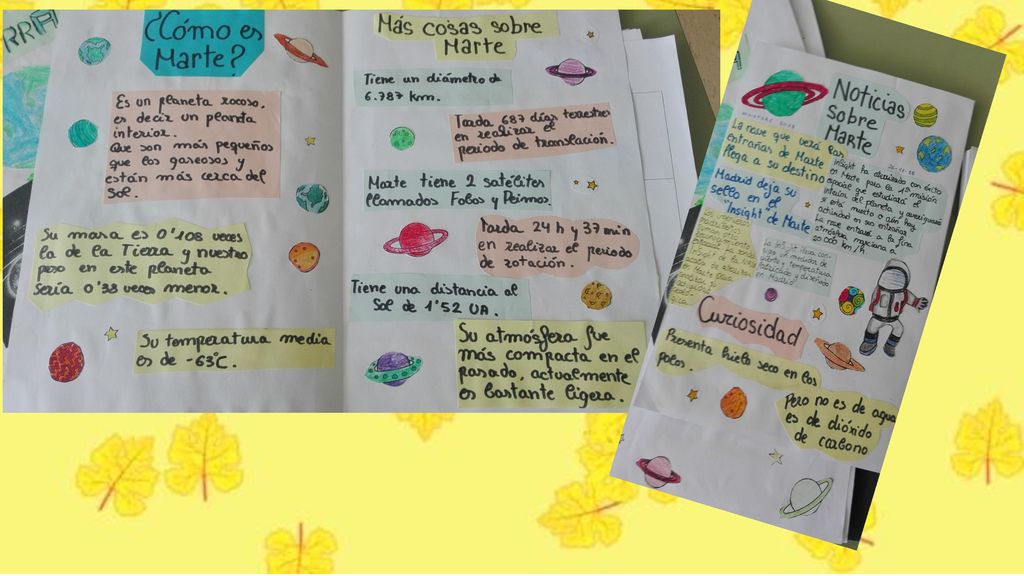 RRA
¿Cómo es
Marte?
Es un planeta rocoso,
es decir un planeta
interior.
Que son más pequeños
que los gaseosos y
están más cerca del
Sol.
Su masa es 0'108 veces
la de la Tierra y nuestro
peso en este planeta
sería 0'38 veces menor.
Su temperatura media
es de -63°C.
Más cosas sobre
Marte
Tiene un diámetro de
6.787 km.
Tarda 687 días terrestres
en realizar el
periodo de translación.
Marte tiene 2 satélites
llamados Fobos y Deimos.
Tarda 24 h y 37 min
en realizar el periodo
de rotación.
Tiene una distancia al
Sol de 1'52 UA.
Su atmósfera fue
más compacta en el
pasado, actualmente
es bastante ligera.
Noticias
sobre
Marte
La nave que verá las
entrañas de Marte
llega a su destino
Madrid deja su
sello en el
"Insight" de Marte
InSight ha aterrizado con éxito
en Marte para la 1ª misión
espacial que estudiará el
interior del planeta y averiguará
si está muerto o aún hay
actividad en sus entrañas
la nave entrará a la fina
atmósfera marciana a
20.000 km/h
Curiosidad
Presenta hielo seco en los
polos.
Pero no es de agua
es de dióxido
de carbono